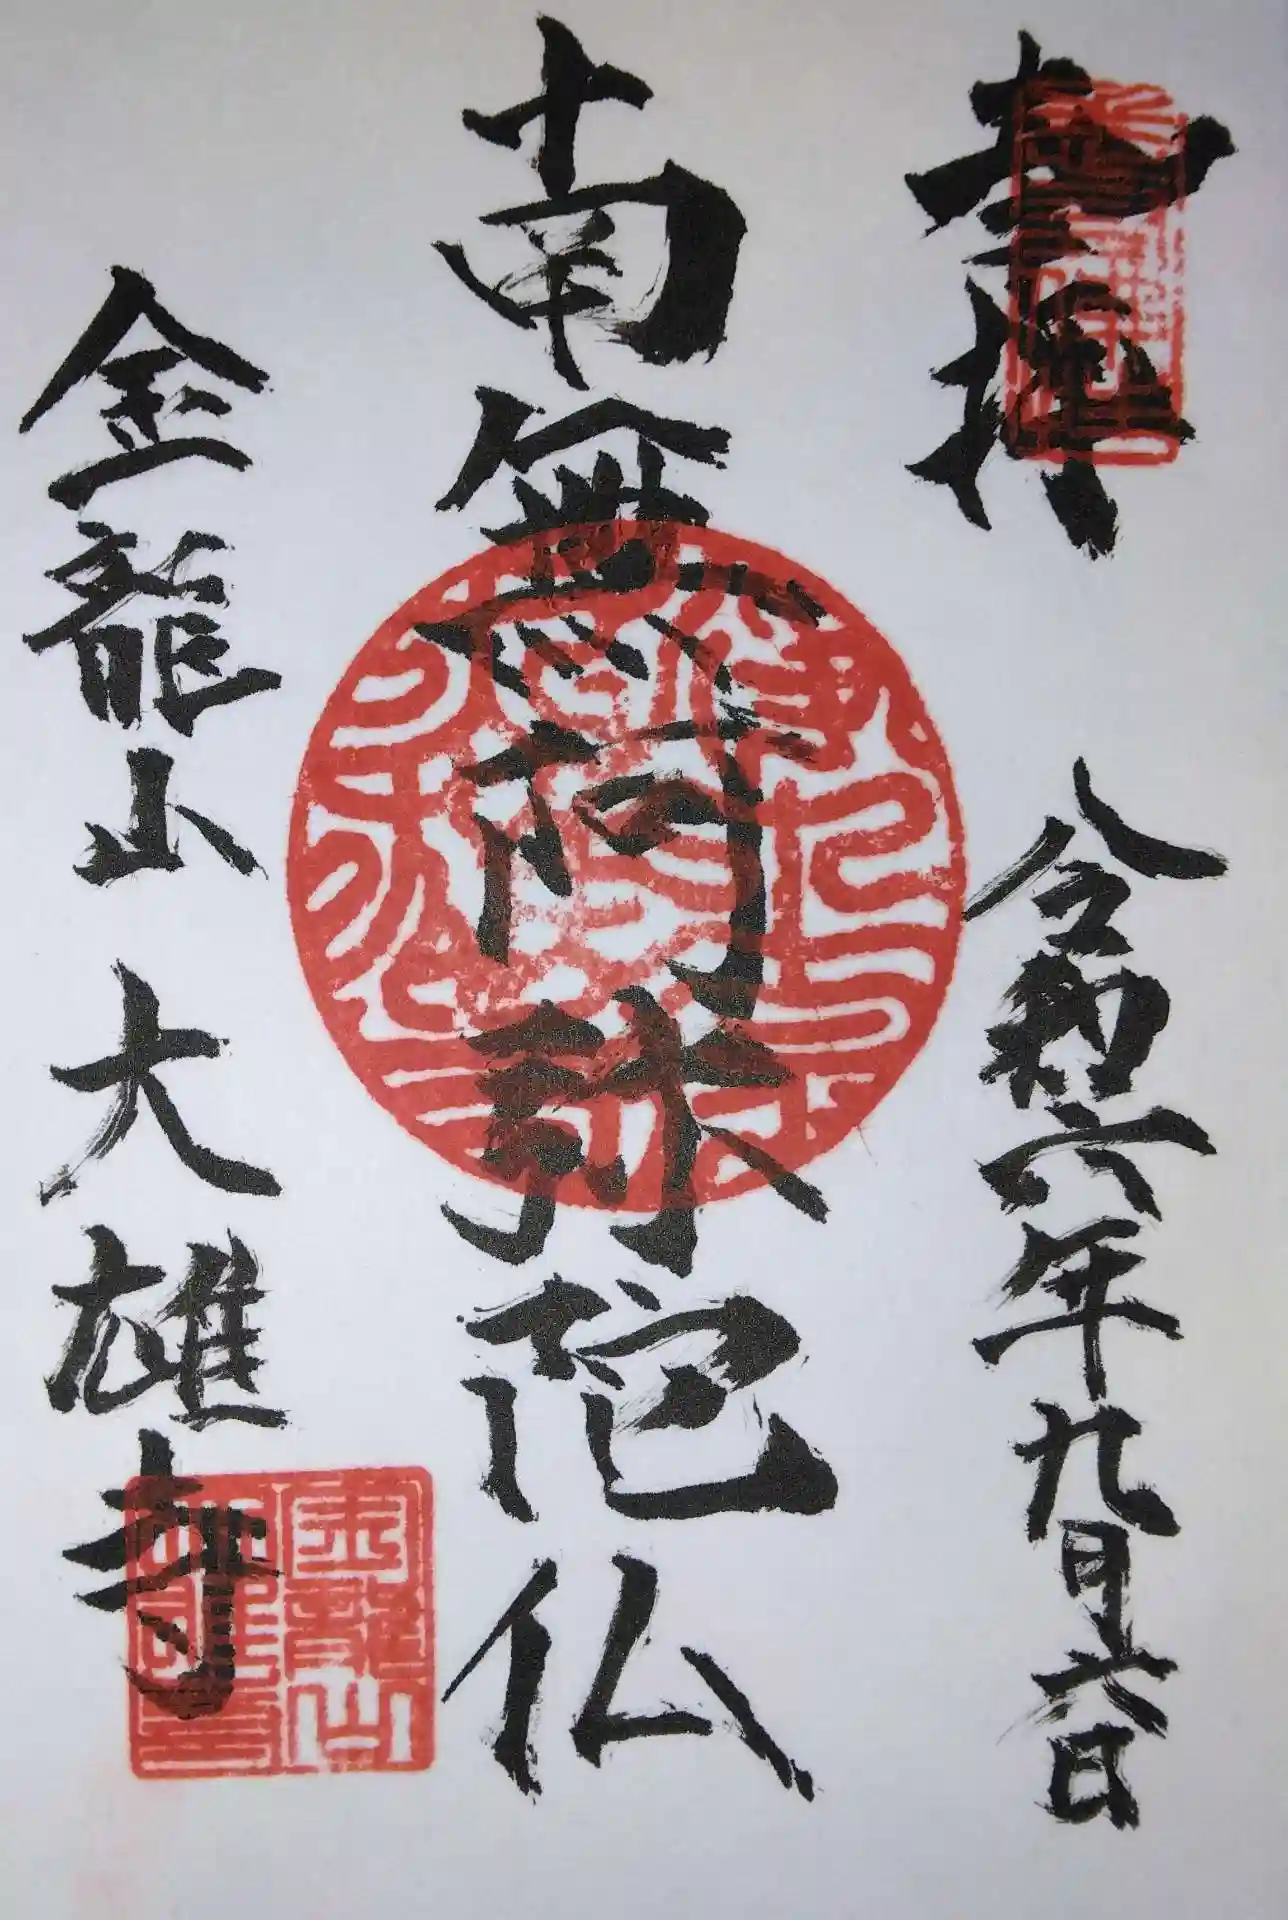 奉拝
令和六年九月六日
南無阿弥陀仏
金龍山 大雄寺
金龍山